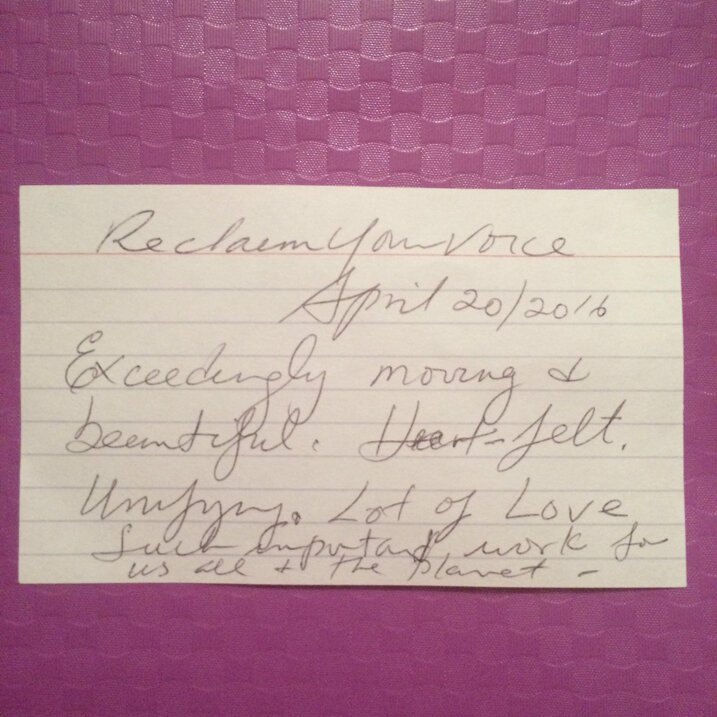 Reclaim Your Voice
April 20/2016
Exceedingly moving &
beautiful. Heart-felt.
Unifying. Lot of Love
Such important work for
us all & the planet -